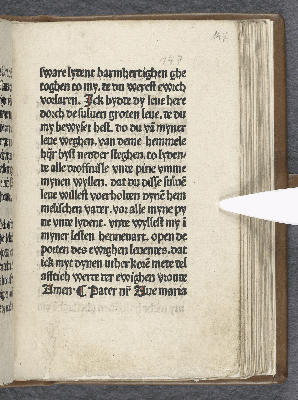 147
147
sware lydent barmhertighen ghe
toghen to my. te du werest ewich
vorlaren. Jck bydde dy leue here
dorch de suluen groten leue. te du
my bewyset hest. do du vā myner
leue weghen. van deme hemmele
byst nedder steghen. to lyden
te alle droffnisse vnte pine vmme
mynen wyllen. dat du disse sulue
leue willest vorholten dynē hem
melischen vater. vor alle myne py
ne vnte lydent. vnte wyllest my i
myner lesten hennevart. open de
porten des ewighen leuendes. dat
ick myt dynen vtherkorē mete tel
afftich werte ter ewighen vroute
Amen. Pater nr̄ Aue maria